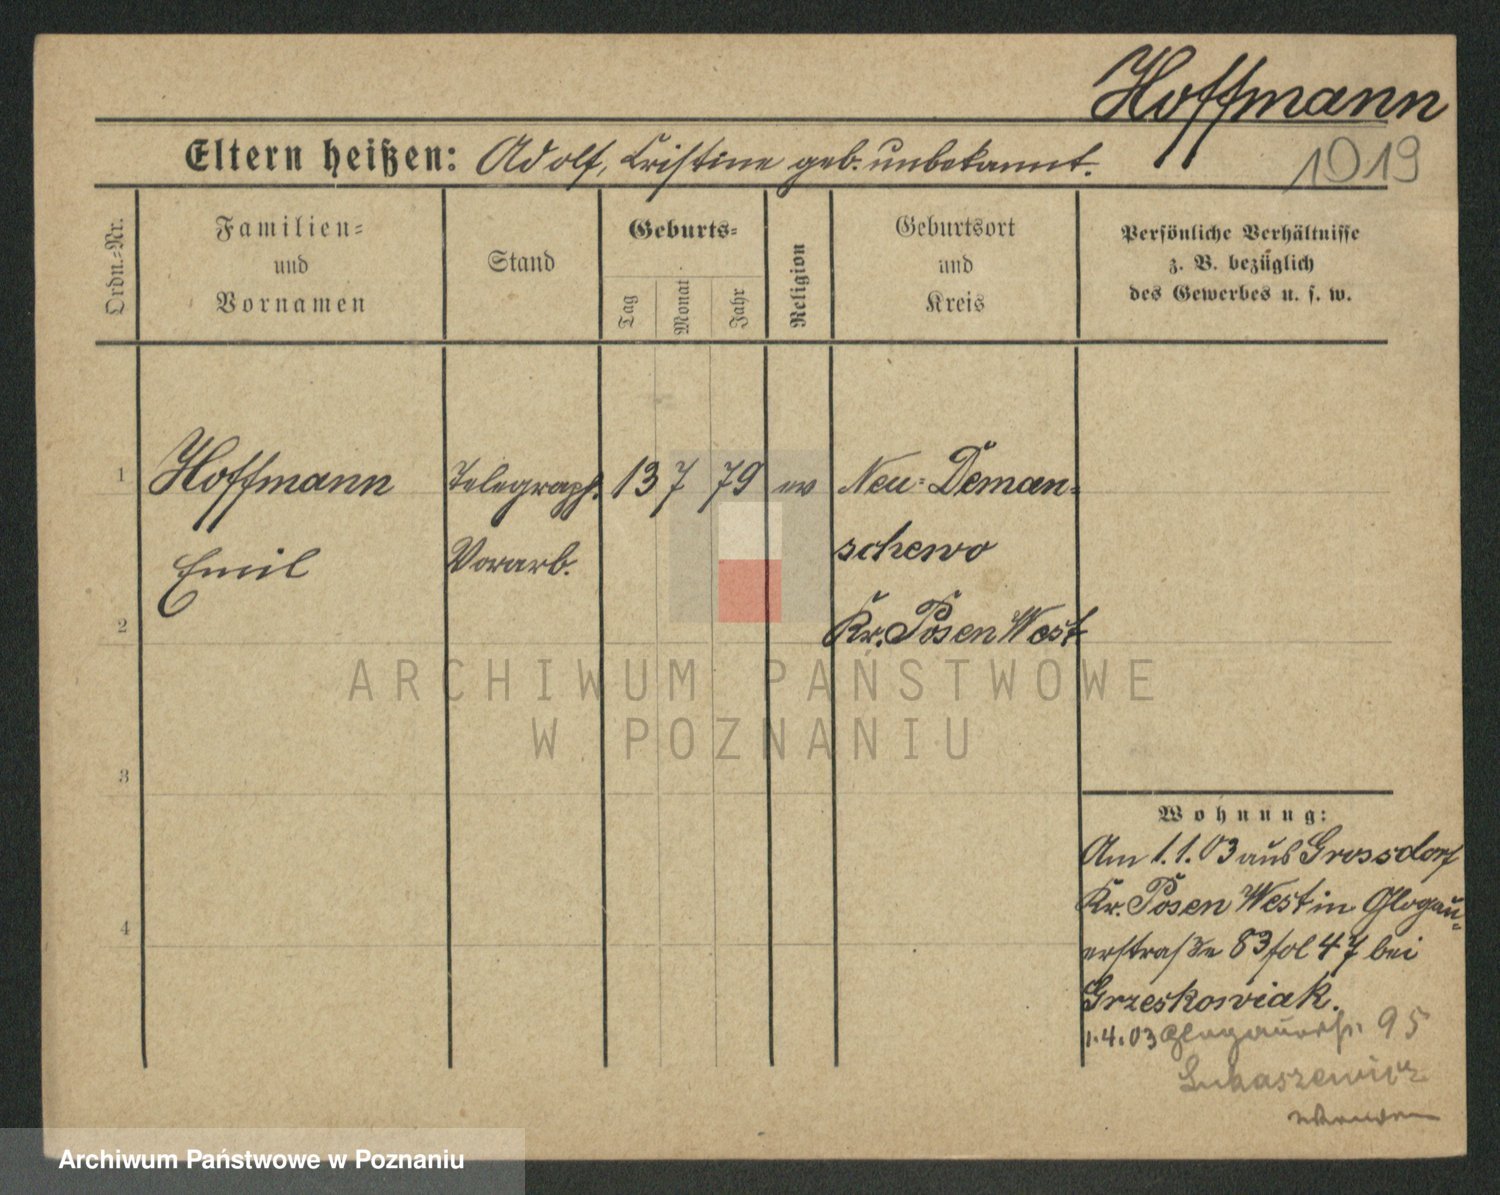 Hoffmann
1019
Eltern heißen: Adolf, Cristine geb. unbekannt.
Ordn.-Nr.
Familien-
und
Vornamen
Stand
Geburts-
Tag
Monat
Jahr
Religion
Geburtsort
und
Kreis
Persönliche Verhältnisse
z. B. bezüglich
des Gewerbes u. s. w.
1 Hoffmann Telegraph. 13 7 79 ev Neu-Deman-
Emil Vorarb. schewo
2 Kr. Posen West
ARCHIWUM PAŃSTWOWE
W POZNANIU
3
Wohnung:
Am 1.1.03 aus Grossdorf
Kr. Posen West in Glogau-
4
erstraße 83 fol 47 bei
Grzeskowiak.
1.4.03 Glogauerstr. 95
Lukaszewicz
Archiwum Państwowe w Poznaniu